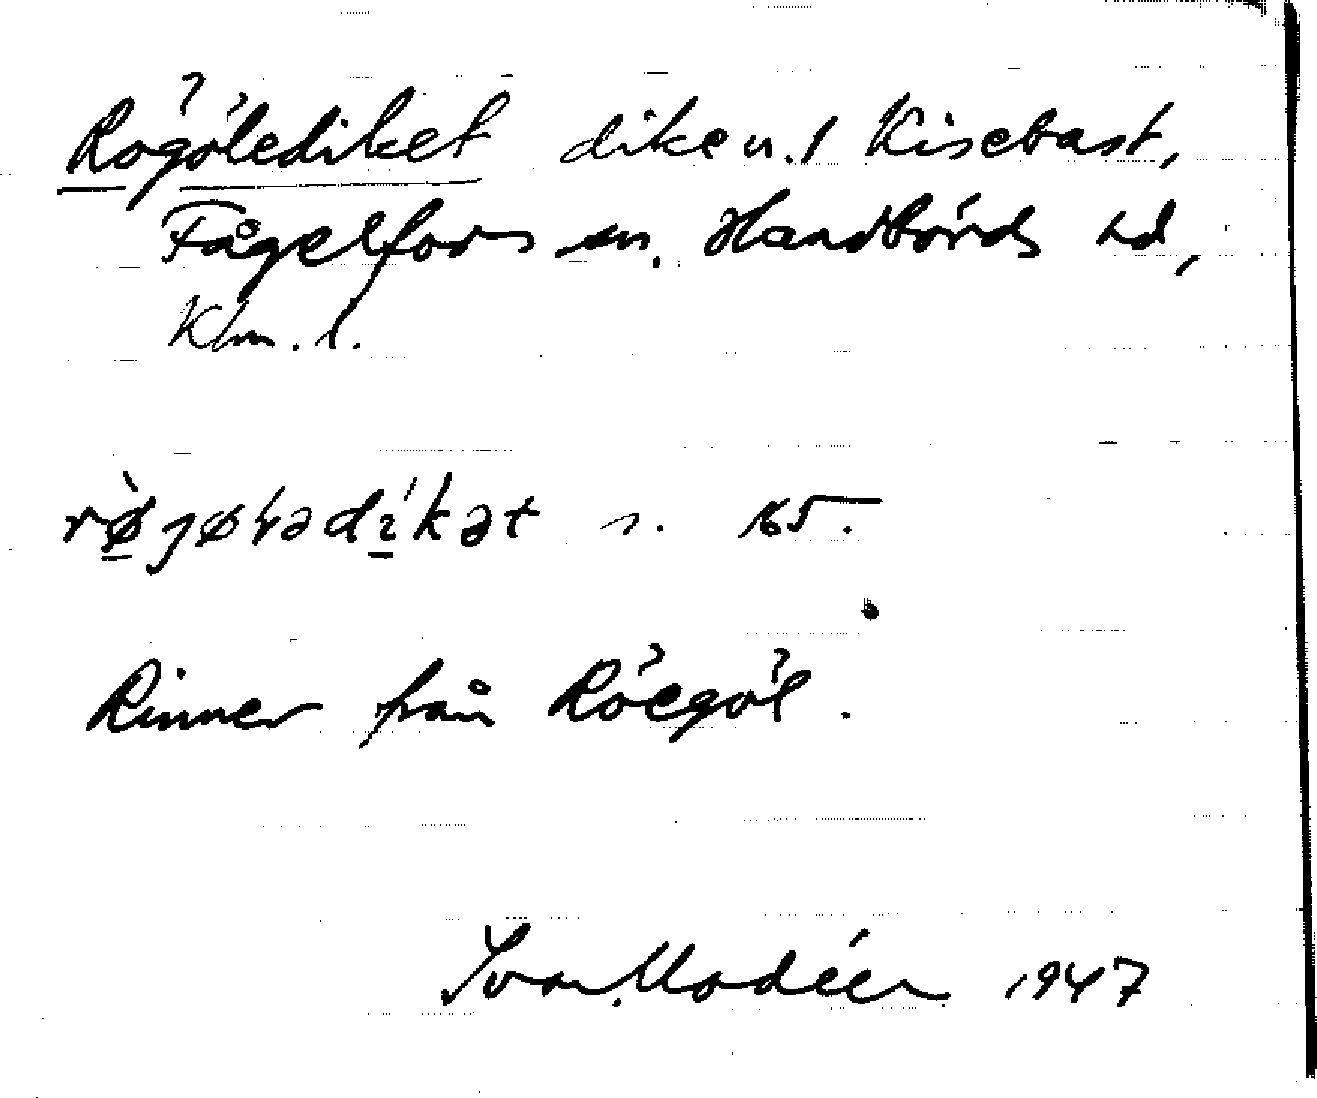 Rögölediket dike n.f Kisebast,
Fågelfors sn. Handbörds hd,
Klm. l.
rø̀gøɫədíkət n. 165.
Rinner från Röegöl.
Ivar Modéer 1947